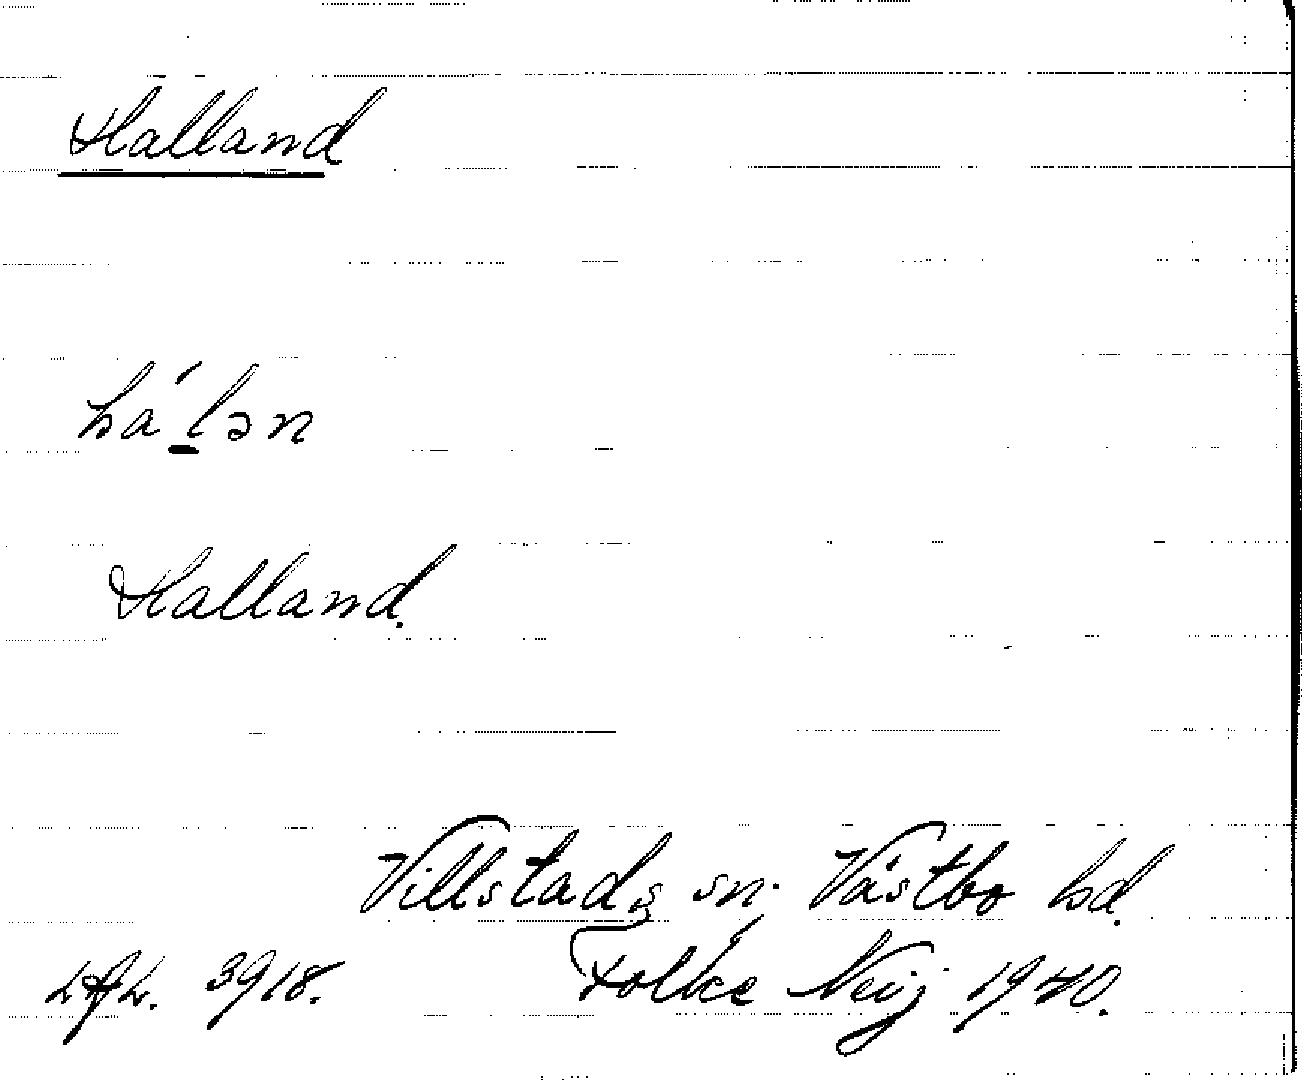 Halland
ha´lən
Halland.
Villstads sn. Västbo hd.
LAL. 3918. Folke Neij 1940.